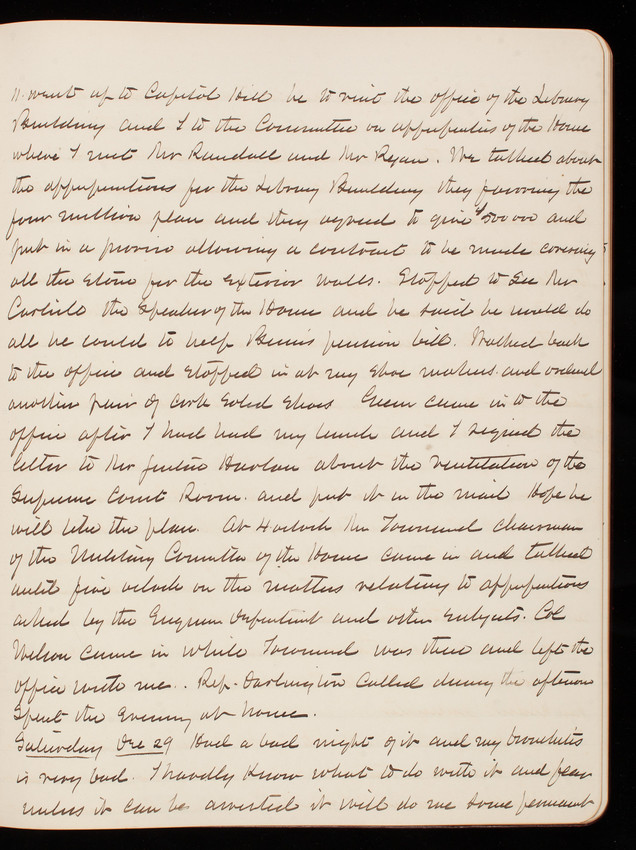 went up to Capitol Hill he to visit the office of the Library
Building and I to the Committee on appropriations of the House
where I met Mr Randall and Mr Ryan. We talked about
the appropriations for the Library Building they favoring the
four million plan and they agreed to give $500 000 and
put in a proviso allowing a contract to be made covering
all the stone for the exterior walls. Stopped to see Mr
Carlisle the Speaker of the House and he said he would do
all he could to help pension bill. Walked back
to the office and stopped in at my shoe makers. and ordered
another pair of cork soled shoes Green came in to the
office after I had had my lunch and I signed the
letter to Mr Justice Harlan about the ventilation of the
Supreme Court Room. and put it in the mail Hope he
will like the plan. At 4 oclock Mr Townsend chairman
of the Military Committee of the House came in and talked
until five oclock on the matters relating to appropriations
asked by the Engineer Department and other subjects. Col
Wilson came in while Townsend was there and left the
office with me.. Rep. Darlington called during the afternoon
Spent the evening at home.
Saturday Dec 29 Had a bad night of it and my bronchitis
is very bad. I hardly know what to do with it and fear
unless it can be arrested it will do me some permanent